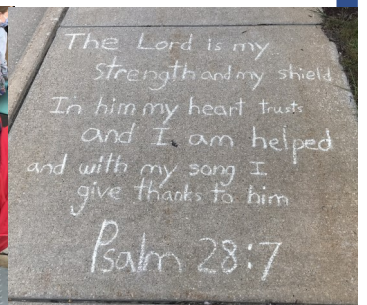 The Lord is my
strength and my shield
In him my heart trusts
and I am helped
and with my song I
give thanks to him
Psalm 28:7